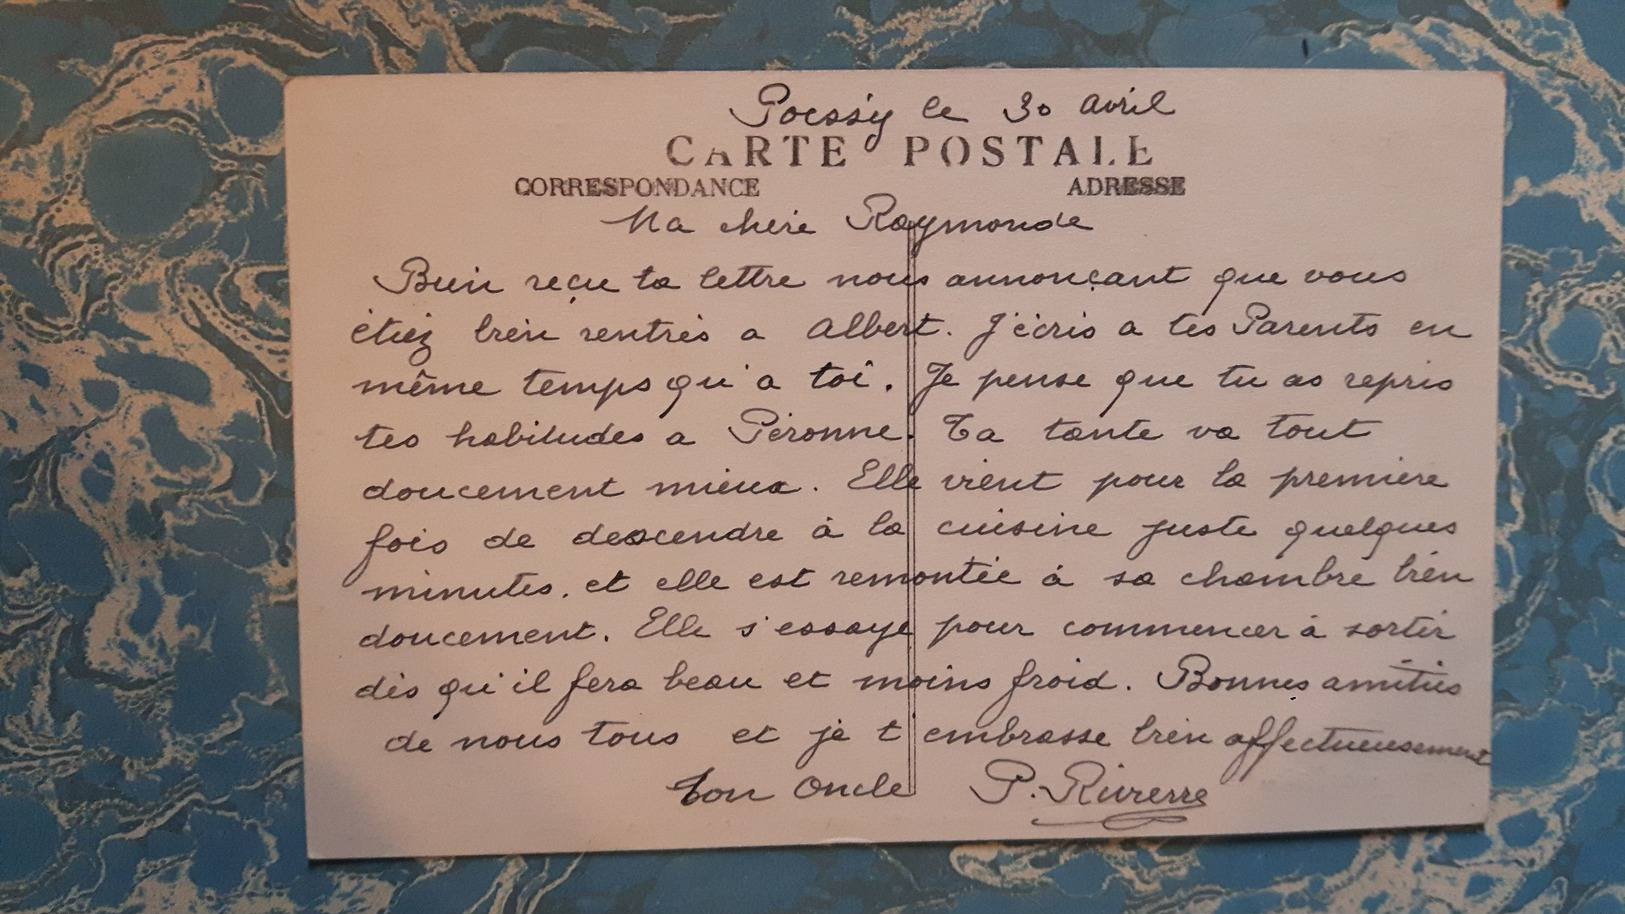 Poissy le 30 avril
CARTE POSTALE
CORRESPONDANCE ADRESSE
Ma chère Raymonde
Bien reçu ta lettre nous annonçant que vous
étiez bien rentrés a Albert. J'écris a tes Parents en
même temps qu'a toi. Je pense que tu as repris
tes habitudes a Péronne. Ta tante va tout
doucement mieux. Elle vient pour la premiere
fois de descendre à la cuisine juste quelques
minutes. et elle est remontée à sa chambre bien
doucement. Elle s'essaye pour commencer à sortir
dès qu'il fera beau et moins froid. Bonnes amitiés
de nous tous et je t embrasse bien affectueusement
Ton Oncle P.